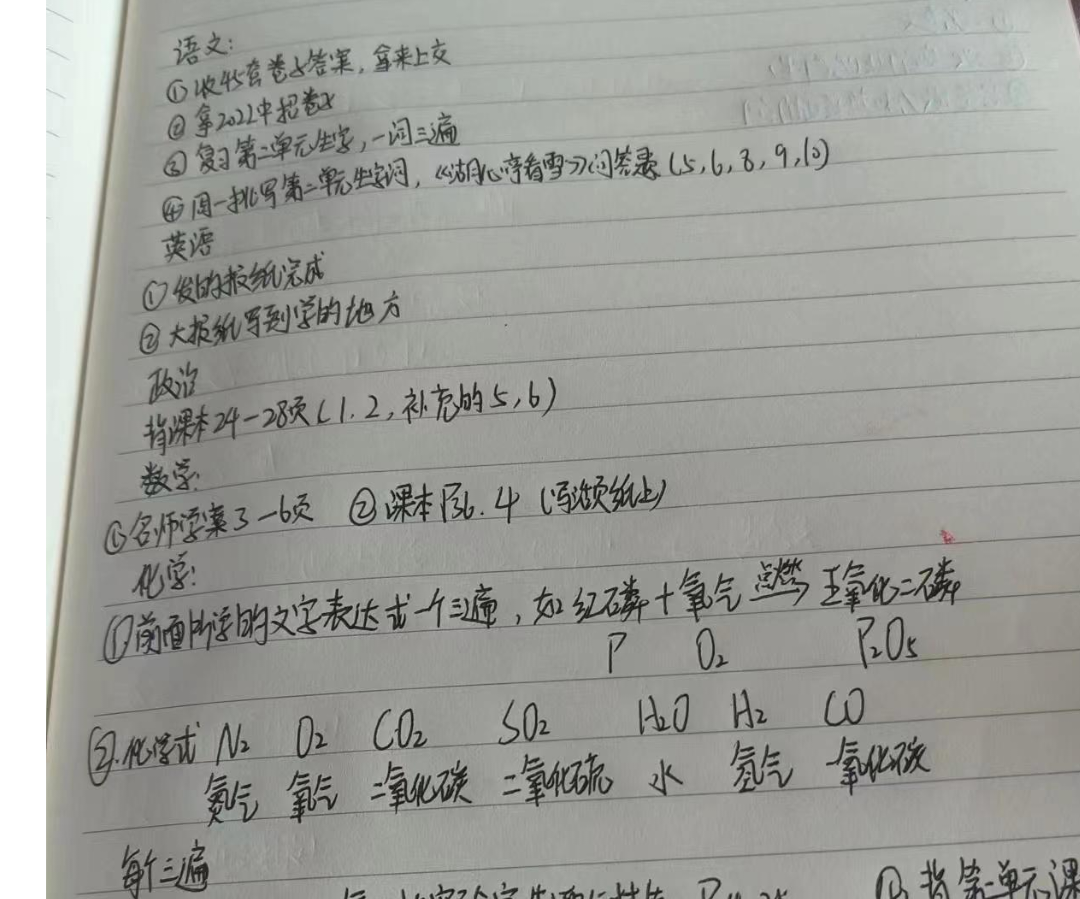 语文:
①收45套卷子答案，拿来上交
②拿2022中招卷子
③复习第二单元生字，一词三遍
④周一批写第二单元生字词，《湖心亭看雪》问答录(5,6,8,9,10)
英语
①发的报纸完成
②大报纸写到学的地方
政治
背课本24-28页(1.2,补充的5,6)
数学:
①名师学案3-6页 ②课本P36.4 (写纸上)
化学:
①前面所学的文字表达式一个三遍，如红石磷+氧气 点燃→ 五氧化二磷
P O₂ P₂O₅
②.化学式 N₂ O₂ CO₂ SO₂ H₂O H₂ CO
氮气 氧气 二氧化碳 二氧化硫 水 氢气 一氧化碳
每个三遍
背第一单元课